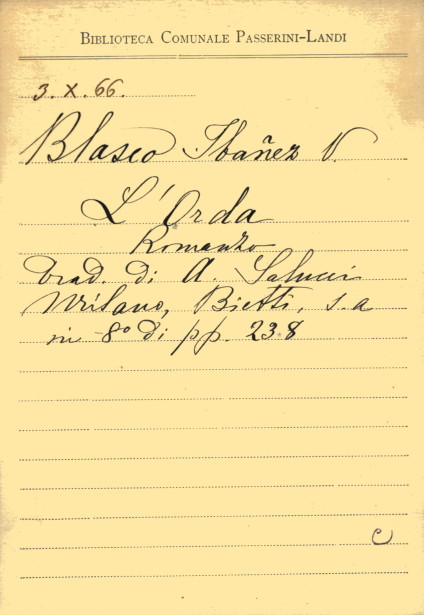 BIBLIOTECA COMUNALE PASSERINI-LANDI
3. X. 66.
Blasco Ibañez V.
L'Orda
Romanzo
trad. di A. Salucci
Milano, Bietti, s.a
in 8° di pp. 238
C